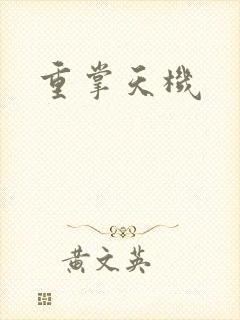 重掌天機
黃文英